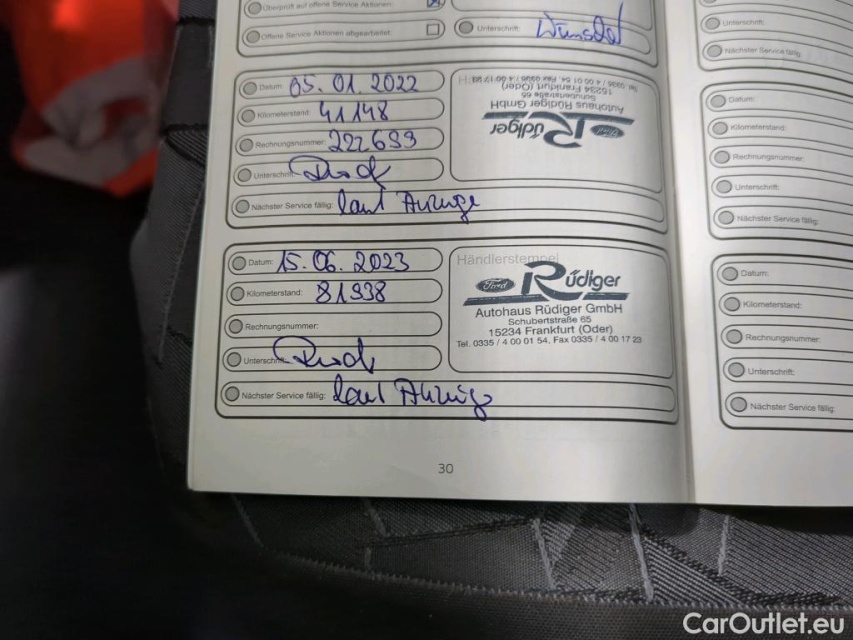 Überprüft auf offene Service Aktionen:
Offene Service Aktionen abgearbeitet:
Unterschrift:
Datum: 05.01.2022
Kilometerstand: 41148
Rechnungsnummer: 222699
Unterschrift:
Nächster Service fällig: laut Anzeige
Ford Rüdiger
Autohaus Rüdiger GmbH
Schubertstraße 65
15234 Frankfurt (Oder)
Tel. 0335 / 4 00 01 54, Fax 0335 / 4 00 17 23
Datum: 15.06.2023
Kilometerstand: 81938
Rechnungsnummer:
Unterschrift:
Nächster Service fällig: laut Anzeige
Händlerstempel
Ford Rüdiger
Autohaus Rüdiger GmbH
Schubertstraße 65
15234 Frankfurt (Oder)
Tel. 0335 / 4 00 01 54, Fax 0335 / 4 00 17 23
30
Unterschrift:
Nächster Service fällig:
Datum:
Kilometerstand:
Rechnungsnummer:
Unterschrift:
Nächster Service fällig:
Datum:
Kilometerstand:
Rechnungsnummer:
Unterschrift:
Nächster Service fällig:
CarOutlet.eu